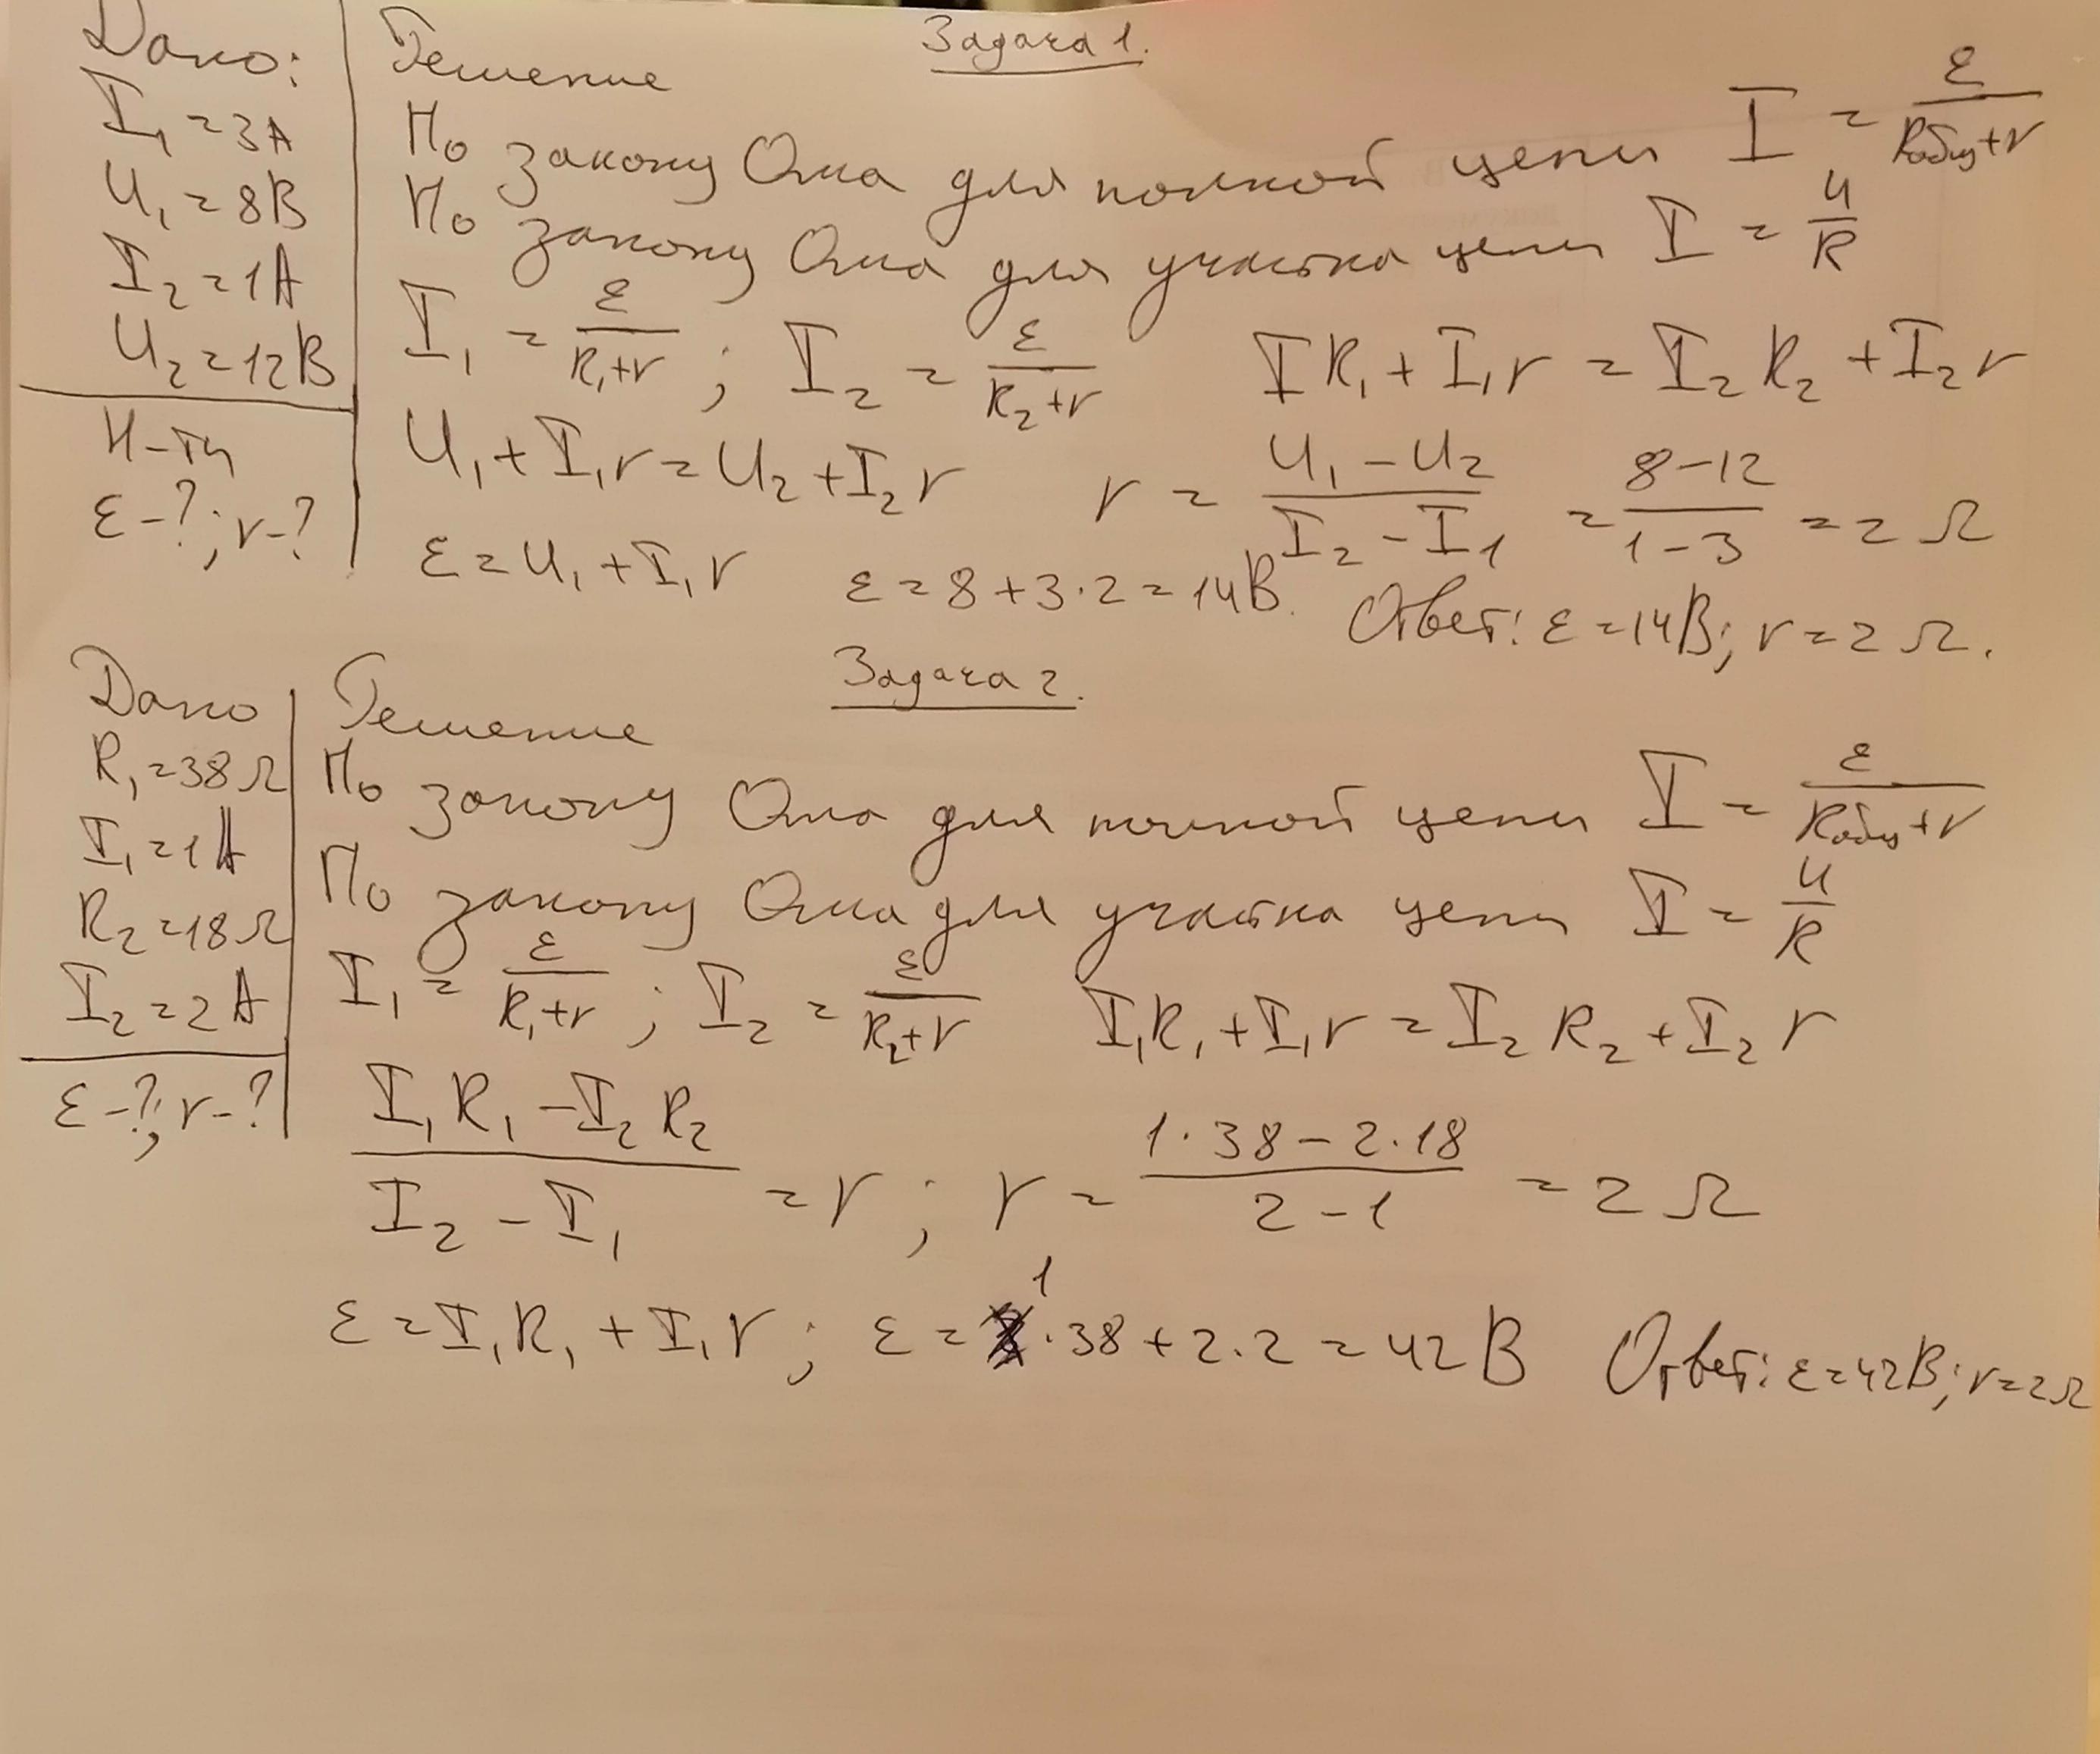 Задача 1.
Дано:
I₁ = 3A
U₁ = 8В
I₂ = 1A
U₂ = 12В
Н-ти
ε-?; r-?
Решение
По закону Ома для полной цепи I = ε/(Rобщ+r)
По закону Ома для участка цепи I = U/R
I₁ = ε/(R₁+r); I₂ = ε/(R₂+r) IR₁ + I₁r = I₂R₂ + I₂r
U₁ + I₁r = U₂ + I₂r r = (U₁ - U₂)/(I₂ - I₁) = (8-12)/(1-3) = 2 Ω
ε = U₁ + I₁r ε = 8 + 3·2 = 14В. Ответ: ε = 14В; r = 2 Ω.
Задача 2.
Дано
R₁ = 38 Ω
I₁ = 1A
R₂ = 18 Ω
I₂ = 2A
ε-?; r-?
Решение
По закону Ома для полной цепи I = ε/(Rобщ+r)
По закону Ома для участка цепи I = U/R
I₁ = ε/(R₁+r); I₂ = ε/(R₂+r) I₁R₁ + I₁r = I₂R₂ + I₂r
(I₁R₁ - I₂R₂)/(I₂ - I₁) = r; r = (1·38 - 2·18)/(2-1) = 2 Ω
ε = I₁R₁ + I₁r; ε = 1·38 + 2·2 = 42 В Ответ: ε = 42В; r = 2Ω